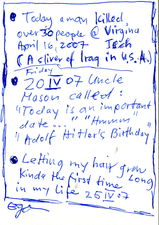 • Today a man killed
over 30 people @ Virginia
April 16, 2007 Tech
(A sliver of Iraq in U.S.A.)
Friday
• 20 IV 07 Uncle
Mason called:
"Today is an important
date..." "Hmmm"
"Adolf Hitler's Birthday"
• Letting my hair grow
Kinda the first time Long
in my life 25 IV 07